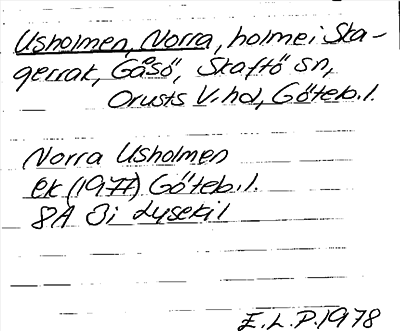 Usholmen, Norra, holme i Ska-
gerrak, Gåsö, Skaftö sn,
Orusts V. hd, Göteb. l.
Norra Usholmen
ek (1977) Göteb. l.
8A 8i Lysekil
E. L. P. 1978